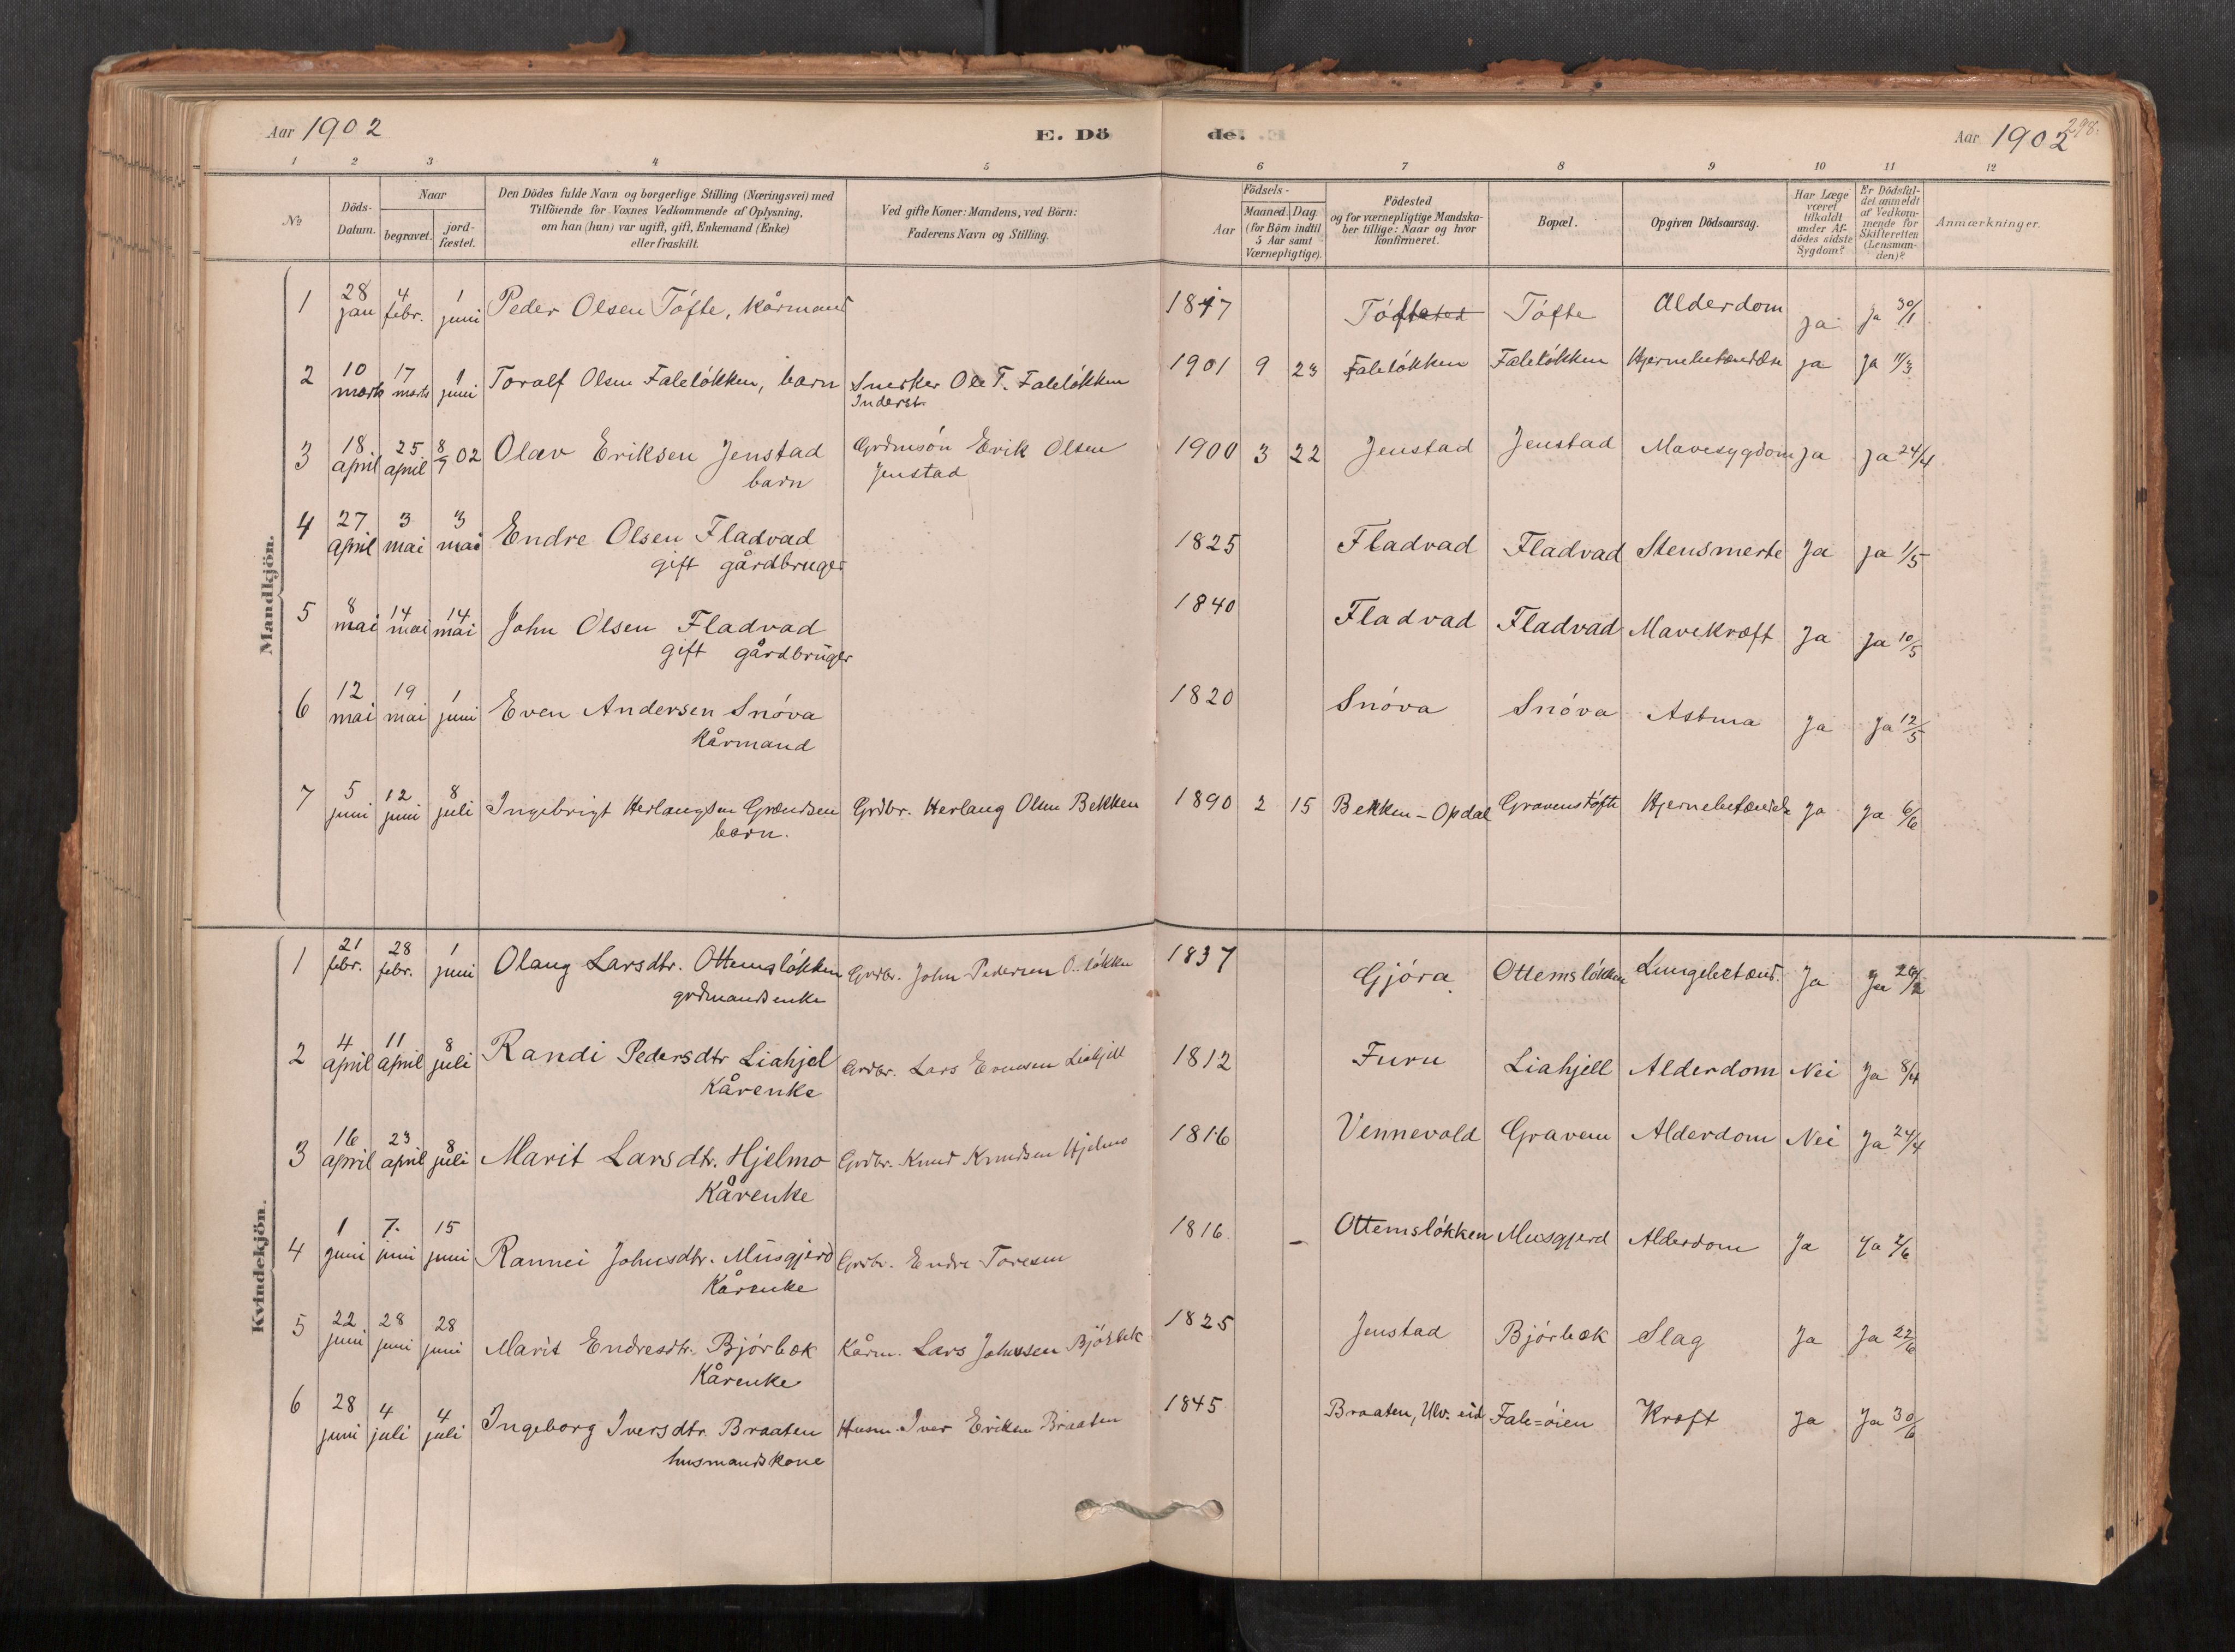 Aar 1902 E. Dö de. Aar 1902 298.
1 2 3 4 5 6 7 8 9 10 11 12
No
Döds-Datum.
Naar
begravet.
jord-fæstet.
Den Dödes fulde Navn og borgerlige Stilling (Næringsvei) med
Tilföiende for Voxnes Vedkommende af Oplysning,
om han (hun) var ugift, gift, Enkemand (Enke)
eller fraskilt.
Ved gifte Koner: Mandens, ved Börn:
Faderens Navn og Stilling.
Födsels-
Aar
Maaned. Dag.
(for Börn indtil
5 Aar samt
Værnepligtige).
Födested
og for værnepligtige Mandska-
ber tillige: Naar og hvor
konfirmeret.
Bopæl.
Opgiven Dödsaarsag.
Har Læge
været
tilkaldt
under Af-
dödes sidste
Sygdom?
Er Dödsfal-
det anmeldt
af Vedkom-
mende for
Skifteretten
(Lensman-
den)?
Anmærkninger.
Mandkjön.
1 28 jan 4 febr. 1 juni Peder Olsen Tófte, Kårmand 1817 Tófte Tófte Alderdom ja ja 30/1
2 10 marts 17 marts 1 juni Toralf Olsen Faleløkken, barn Snerker Ole T. Faleløkken 1901 9 23 Faleløkken Faleløkken Hjernebetændelse ja ja 11/3
Inderst
3 18. april 25 april 8/7 02 Olav Eriksen Jenstad Grdmsón Erik Olsen 1900 3 22 Jenstad Jenstad Mavesygdom Ja Ja 24/4
barn Jenstad
4 27. april 3 mai 3 mai Endre Olsen Fladvad 1825 Fladvad Fladvad Stensmerte Ja ja 1/5
gift gårdbruger
5 8 mai 14 mai 14. mai John Olsen Fladvad 1840 Fladvad Fladvad Mavekræft Ja Ja 10/5
gift gårdbrüger
6 12 mai 19 mai 1 juni Even Andersen Snóva 1820 Snóva Snóva Astma Ja Ja 12/5
Kårmand
7 5 juni 12 juni 8 juli Ingebrigt Herlaugsen Grdbr. Herlaug Olsen Bekken 1890 2 15 Bekken - Opdal Hjernebetændelse Ja Ja 6/6
barn.
Kvindekjön.
1 21 febr. 28 febr. 1 juni Olaug Larsdtr. Ottemsløkken Grdbr. John Pedersen O. løkken 1837 Gjóra Ottemsløkken Lungebetænd. Ja Ja
grdmandsenke
2 4 april 11 april 8 juli Randi Pedersdtr Liahjel Grdbr. Lars Evensen Liahjell 1812 Furu Liahjell Alderdom Nei Ja 8/4
Kårenke
3 16 april 23 april 8 juli Marit Larsdtr. Hjelmo Grdbr. Knud Knudsen Hjelmo 1816 Vennevold Gravem Alderdom Nei Ja 24/4
Kårenke
4 1 juni 7. juni 15 juni Rannei Johnsdtr. Müsgjerd Grdbr. Endre Toresen 1816 - Ottemsløkken Musgjerd Alderdom Ja Ja
Kårenke
5 22 juni 28 juni 28 juni Marit Endresdtr. Bjórbæk Kårm. Lars Johnsen Bjórbæk 1825 Jenstad Bjórbæk Slag Ja Ja 22/6
Kårenke
6 28 juni 4 juli 4 juli Ingeborg Iversdtr. Braaten Husm. Iver Eriksen Braaten 1845 Braaten, Ulv. eid Fale=óien Kræft Ja Ja 30/6
husmandskone